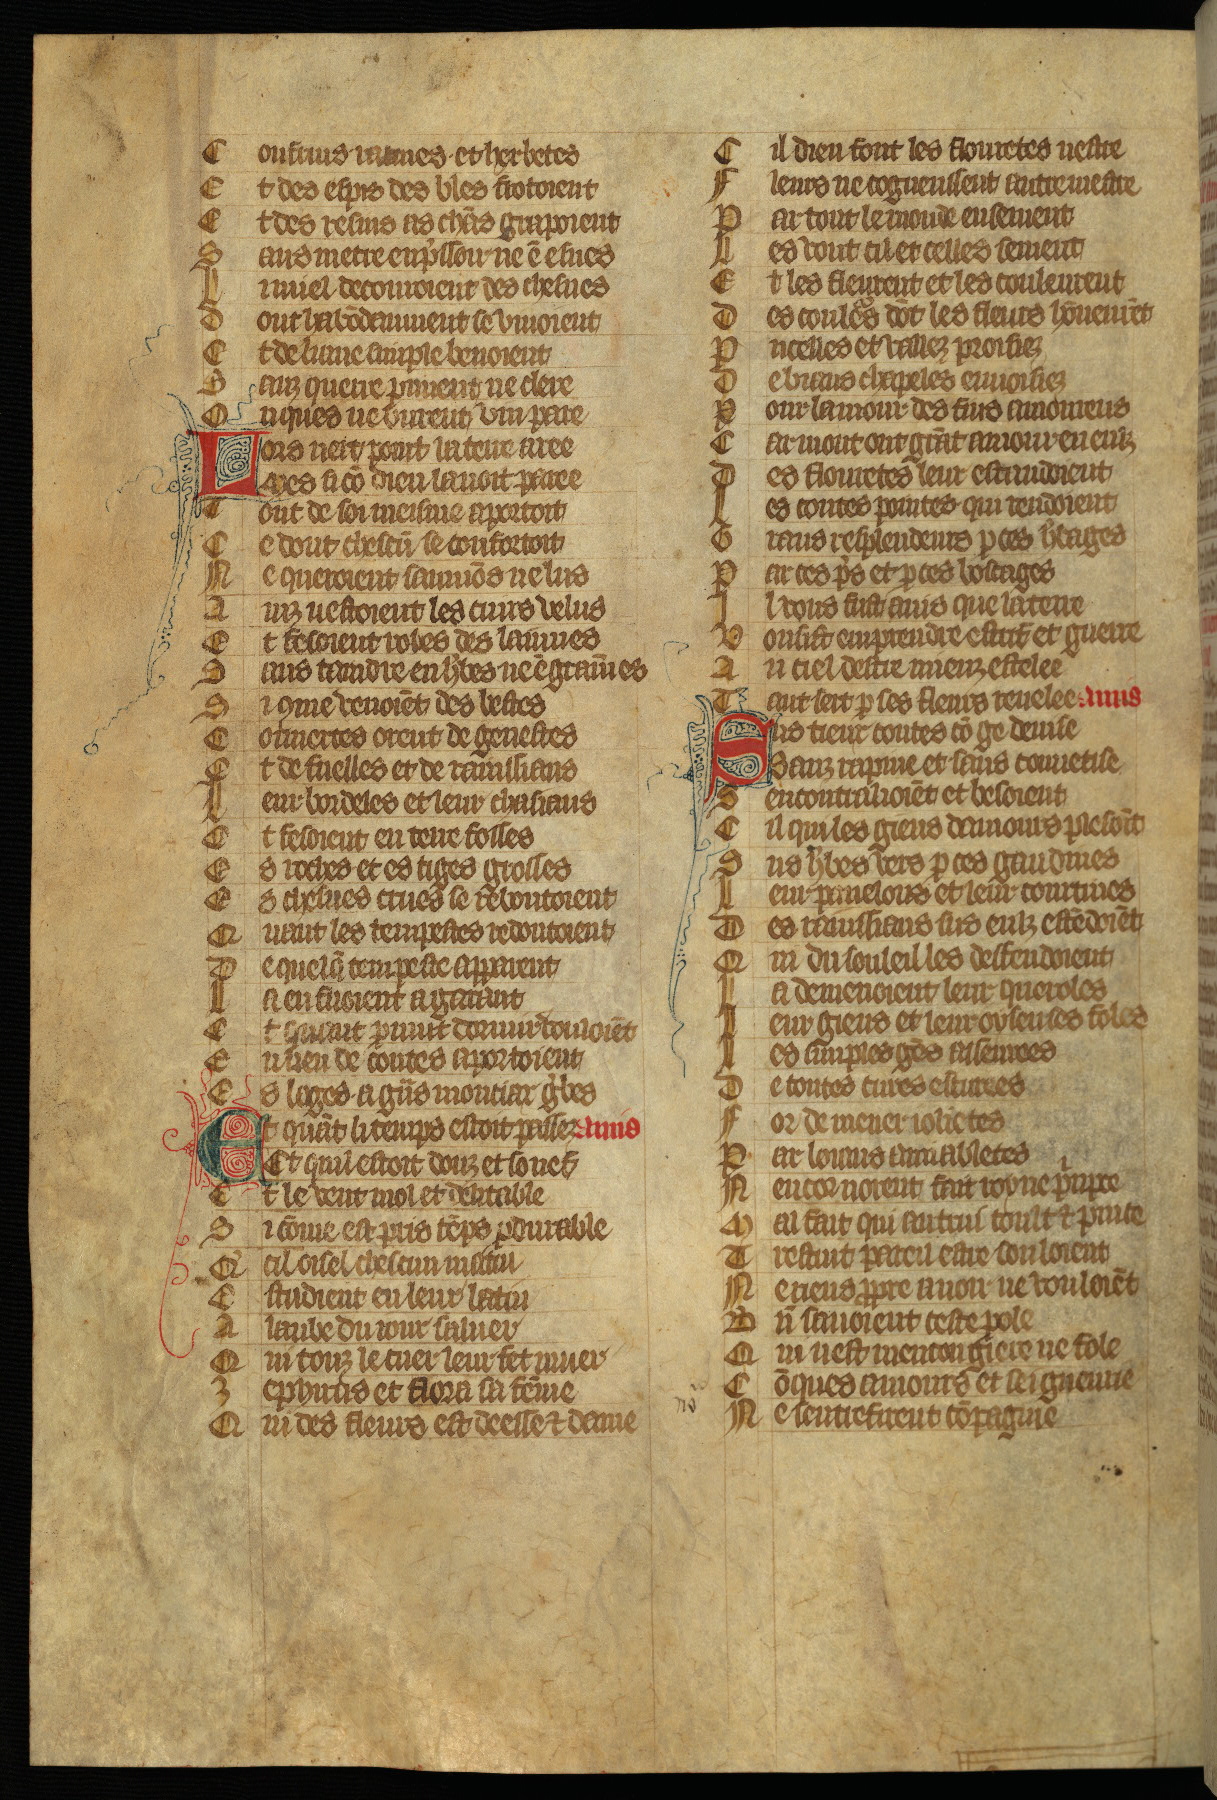 C onstruis raimes et herbetes
E t des espis des bles frotoient
E t des resins as chãs grapoient
S ans metre en p̃ssour ne ẽ esues
L i miel decouroient des chesnes
D ont habõdaument se viuoient
E t de liaue simple beuoient
S anz querre piment ne clere
O nques ne burent vin pare
L ors nert point la terre aree
Mes si cõ dieu lauoit paree
T out de soi meisme aportoit
C e dont chescũ se confortoit
N e queroient saumõs ne lus
A inz uestoient les cuirs velus
E t fesoient robes des laines
S ans taindre en h̾bes ne ẽ graines
S i q̃me venoiẽt des bestes
C ouuertes orent de genestes
E t de fuelles et de rainssiaus
L eur bordeles et leur chasiaus
E t fesoient en terre fosses
E s roches et es tiges grosses
E s chesnes crues se reboutoient
Q uant les tempestes redoutoient
D e quelq̃ tempeste apparant
L a en fuioient a garant
E t quant p̱ nuit dormir vouloiẽt
E n lieu de coutes aportoient
E s loges a gñs monciax g̾bes
E t quãt li temps estoit passez amis
Et quil estoit douz et souez
E t le vent mol et delitable
S i cõme est pris tẽps p̱durable
Q cil oisel chescun matin
E studient en leur latin
A laube du iour saluer
Q ui touz le cuer leur fet muer
Z ephirus et flora sa fẽme
Q ui des fleurs est deesse ⁊ dame
C il dieu font les flouretes nestre
F leurs ne cogneussent autre mestre
P ar tout le monde ensement
L es vont cil et celles sement
E t les fleurent et les couleurent
D es coul̾es dõt les fleurs hõneurẽt
P ucelles et vallez proisiez
D e biaus chapeles enuoisiez
P our lamour des fins amoureus
C ar mont ont grãt amour en eulz
D es flouretes leur estandoient
L es coutes pointes qui rendoient
G rans resplendeurs p̱ ces h̾bages
P ar ces p̃s et p̱ ces boscages
I l vous fust auis que la terre
V ousist emprendre estrif et guerre
A u ciel destre mieuz estelee
T ant sert p̱ ses fleurs reuelee amis
S us tieux coutes cõ ge deuise
Sanz rapine et sans couuetise
S entracoloiẽt et besoient
C il qui les gieus damours plesoiẽt
S us h̾bes vers p̱ ces gaudines
L eur paueilons et leur courtines
D es rainssiaus sus eulz estẽdoiẽt
Q ui du souleil les deffendoient
L a demenoient leur queroles
L eur gieus et leur oyseuses foles
L es simples gẽs asseurees
D e toutes cures escurees
F or de mener iolietes
P ar loiaus amiabletes
N encor nouoient fait roy ne p̃nipce
M al fait qui autrui toult ⁊ pince
T restuit pareil estre souloient
N e riens p̱pre auoir ne vouloiẽt
B ñ sauoient ceste p̱ole
Q ui nest mencongiere ne fole
C õques amours et seigneurie
N e sentrefirent cõpagnie